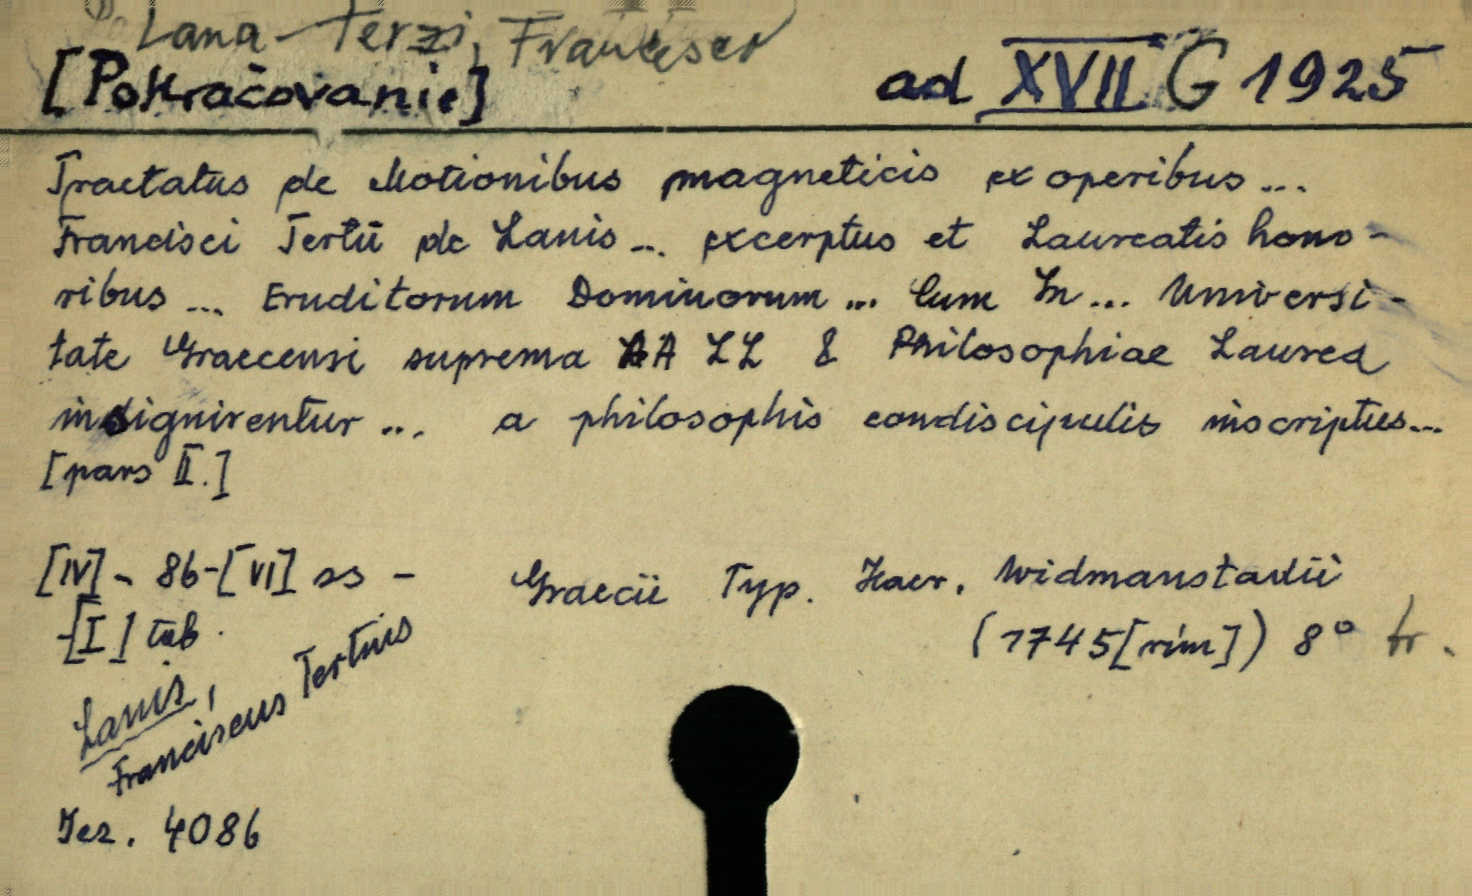 Lana-Terzi, Francesco
[Pokračovanie] ad XVII G 1925
Tractatus de Motionibus magneticis ex operibus ...
Francisci Tertii de Lanis ... excerptus et Laureatis hono-
ribus ... Eruditorum Dominorum ... Cum In ... Universi-
tate Graecensi suprema AA LL & Philosophiae Laurea
insignirentur ... a philosophis condiscipulis inscriptus...
[pars II.]
[IV] - 86-[VI] ss - Graecii Typ. Haer. Widmanstadii
-[I] tab. (1745[rím]) 8° fr.
Lanis,
Franciscus Tertius
Jez. 4086